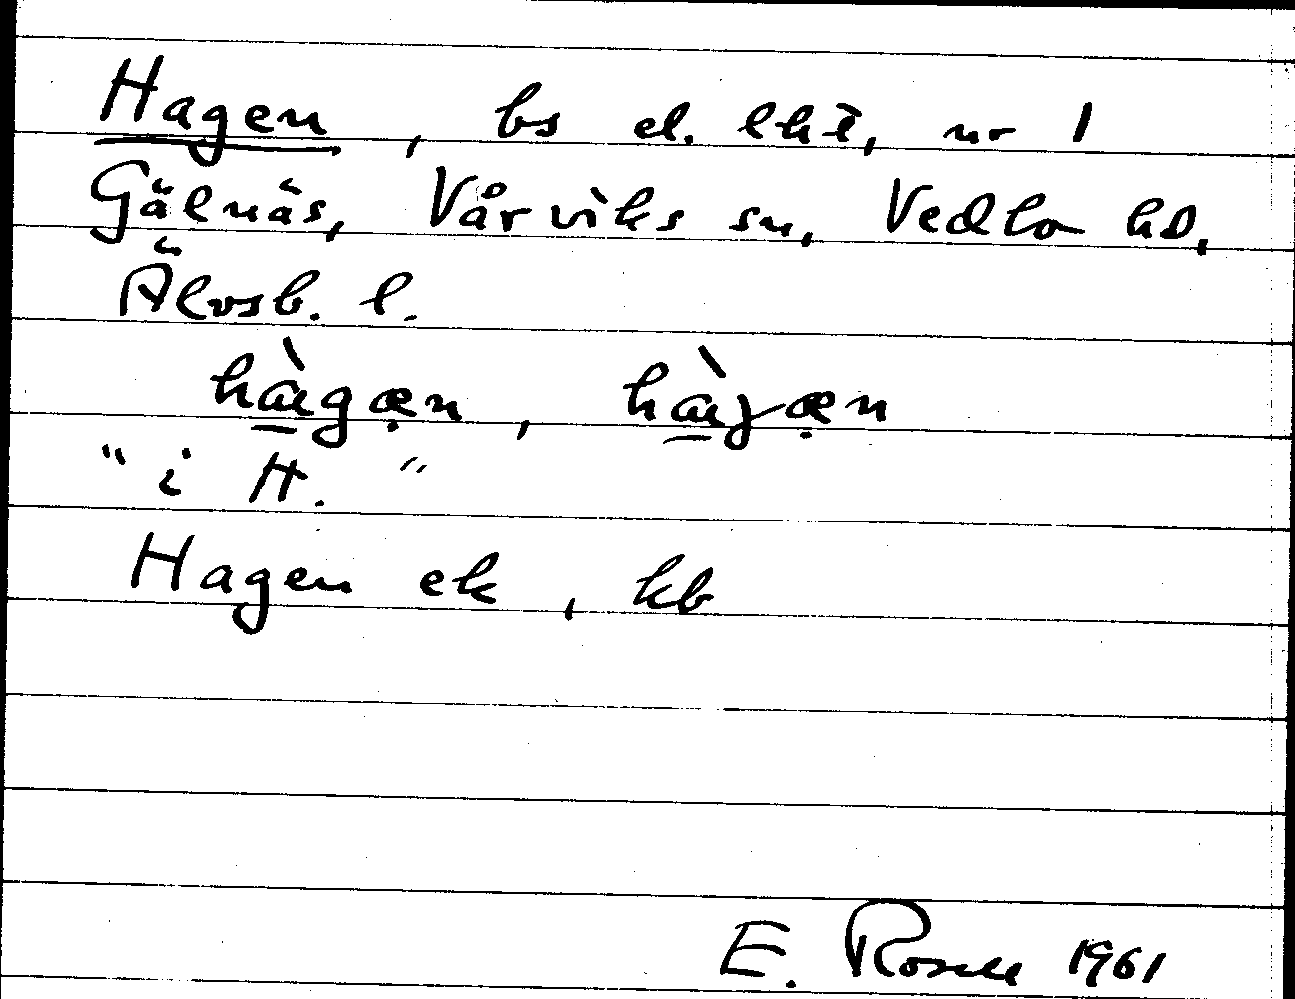 Hagen, bs el. lht, nr 1
Gälnäs, Vårviks sn, Vedbo hd,
Älvsb. l.
hàgæ̣n, hàɣæ̣n
"i H."
Hagen ek, kb
E. Rosell 1961